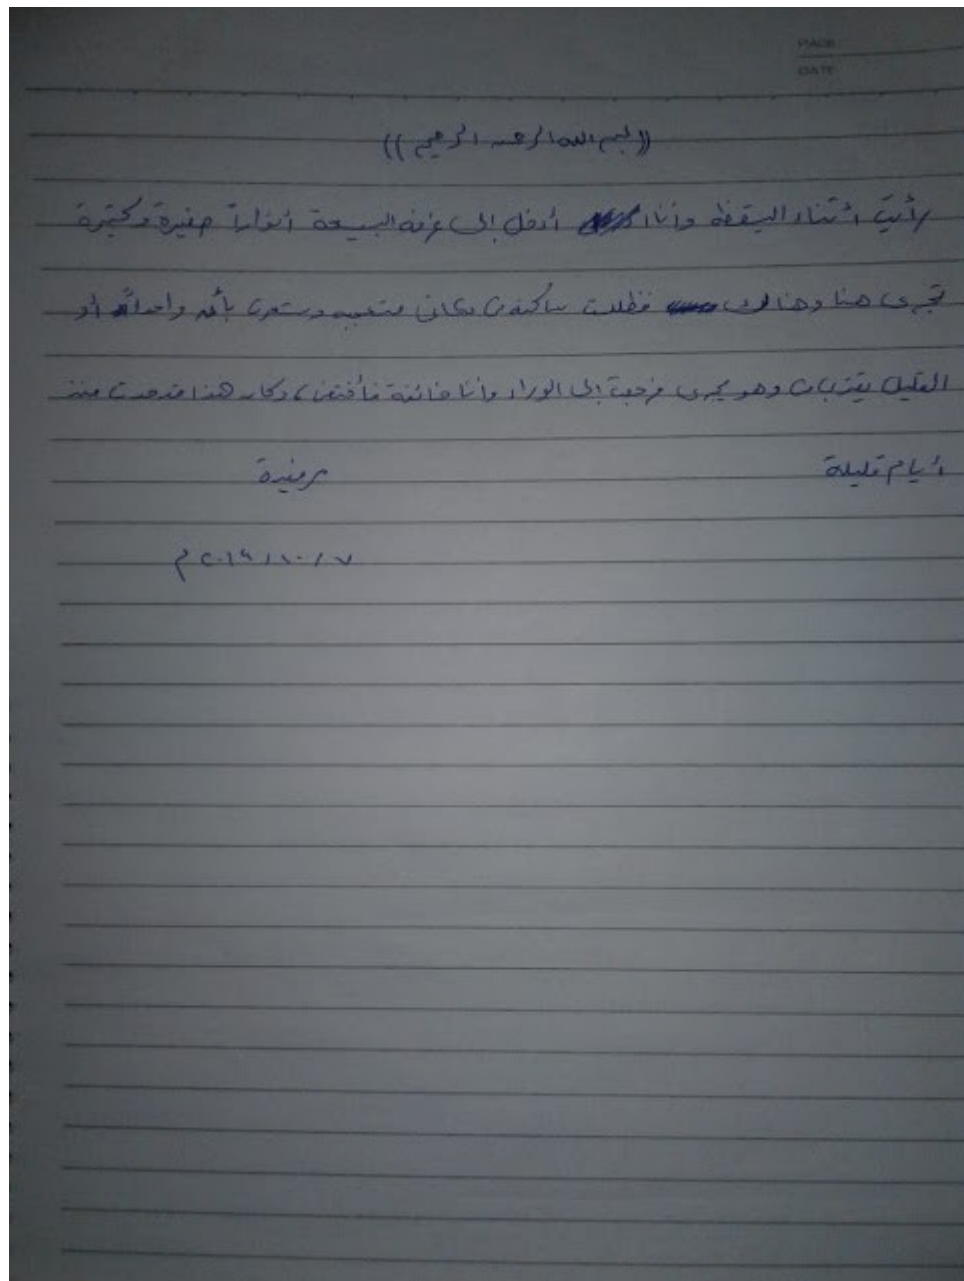 PAGE
DATE
((بسم الله الرحمن الرحيم))
رأيت أثناء اليقظة وأنا أدخل إلى غرفة أنواراً صغيرة وكثيرة
تجري هنا وهناك فظلت ساكنة في مكاني متعجبة وشعرت بأن واحداً أو
القليل يقترب وهو يجري فرجعت إلى الوراء وأنا خائفة فأختفى، وكان هذا قد حدث منذ
أيام قليلة
٧ / ١٠ / ٢٠١٩ م